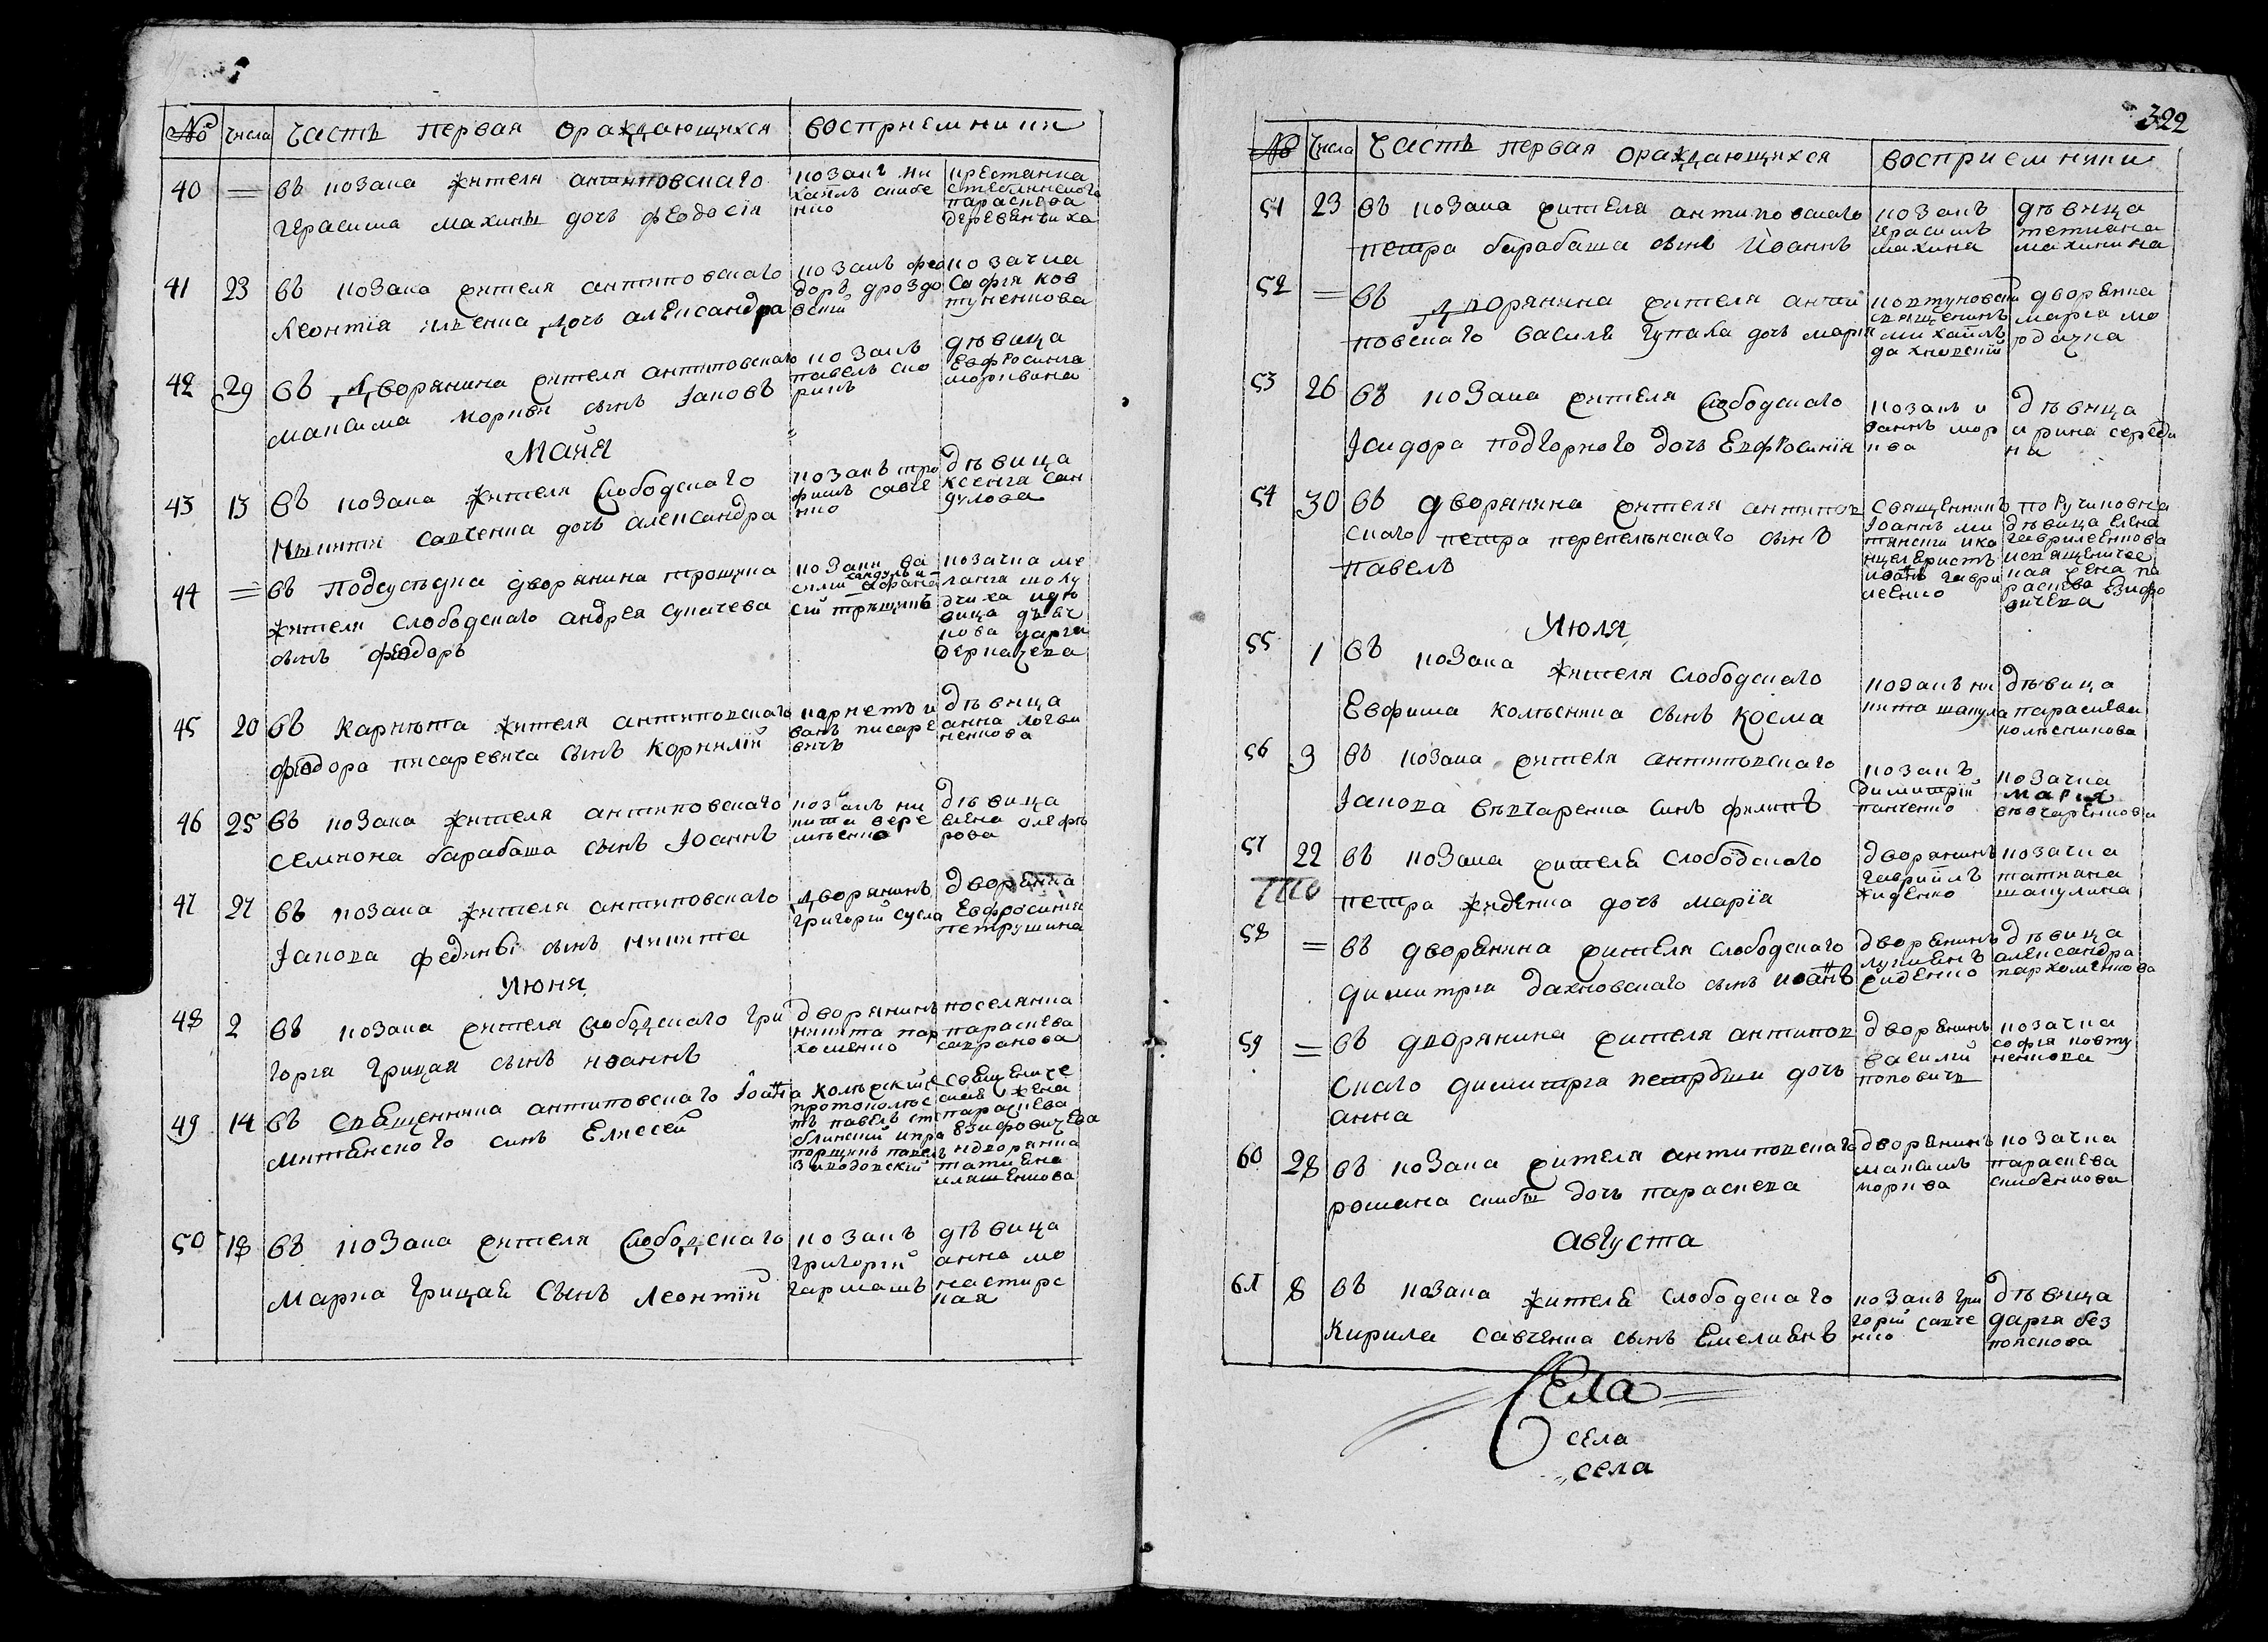 № числа Часть первая ораждающихся восприемники
40 = въ козака жителя антиповскаго
Герасима махины дочь феодосія
козакъ ми
хаилъ скибе
нко
крестянка
стеблинского
параскева
деревенчиха
41 23 въ козака жителя антиповскаго
Леонтія илченка дочь александра
козакъ фео
доръ дроздо
вскій
козачка
Софія ков
туненкова
42 29 въ дворянина жителя антиповскаго
максима коркви сынъ Іаковъ
козакъ
павелъ ско
рикъ
дѣвица
Евфросинія
корквина
Маія
43 13 въ козака жителя Слободскаго
Никити савченка дочь александра
козакъ тро
фимъ савче
нко
дѣвица
ксенія сан
дулова
44 = въ подсусѣдка дворянина трощина
жителя слободскаго андрея сукачева
сынъ феодоръ
козаки ва
сили
кандулъ и
афана
сій трощинъ
козачка ме
ланія шоку
дчиха идѣ
вица дѣяч
кова дарія
деркачева
45 20 въ Карнѣта жителя антиповскаго
феодора писаревича сынъ Корнилій
карнетъ и
ванъ писаре
вичъ
дѣвица
анна логви
ненкова
46 25 въ козака жителя антиповскаго
семиона барабаша сынъ Іоаннъ
козакъ ни
кита вере
мѣенко
дѣвица
елена олефѣ
рова
47 27 въ козака жителя антиповскаго
Іакова федины сынъ никита
дворянинъ
григорій сусла
дворянка
Евфросинія
петрушина
Июня
48 2 въ козака жителя слободскаго гри
горія грицая сынъ иоаннъ
дворянинъ
никита пар
хоменко
поселянка
параскева
сакранова
49 14 въ священника антиповскаго Іоанна
митянского синъ Елисей
колѣскій
протоколис
тъ павелъ сте
блинскій ипра
порщикъ павелъ
священиче
ская жена
параскева
езифовичева
идворянка
татияна
иляшенкова
50 18 въ козака жителя Слободскаго
Марка грицая Сынъ Леонтій
козакъ
григорій
гармашъ
дѣвица
анна мо
настирс
кая
322
№ числа Часть первая ораждающихся восприемники
51 23 въ козака жителя антиповскаго
петра барабаша сынъ Иоаннъ
козакъ
герасимъ
махина
дѣвица
тетиана
махинина
52 = въ дворянина жителя анти
повскаго василя чупаха дочь марія
ковтуновскій
священикъ
михаилъ
дахновскій
дворянка
марія мо
рдачка
53 26 въ козака жителя Слободскаго
Ісидора подгорного дочь Евфросинія
козакъ и
оаннъ кор
ква
дѣвица
ирина середи
на
54 30 въ дворянина жителя антипов
скаго петра перепелѣнскаго сынъ
павелъ
священникъ
Іоаннъ ми
тянскій ика
нцеляристъ
иоанъ гаври
леенко
поручиковна
дѣвица елена
гаврилеенкова
исвященичес
кая жена па
раскева езифо
вичева
Июля
55 1 въ козака жителя слободскаго
Евфима колѣсника сынъ Косма
козакъ ни
кита шакула
дѣвица
параскева
колѣсникова
56 9 въ козака жителя антиповскаго
Іакова вѣвчаренка синъ филипъ
козакъ
димитрій
панченко
козачка
Марія
вѣвчаренкова
57 22 въ козака жителя слободскаго
петра жиденка дочь марія
дворянинъ
гавриилъ
жиденко
козачка
татияна
шакулина
58 = въ дворянина жителя слободскаго
димитрія дахновскаго сынъ иоаннъ
дворянинъ
лукиянъ
жиденко
дѣвица
александра
пархоменкова
59 = въ дворянина жителя антипов
скаго димитрія петраши дочь
анна
дворянинъ
василій
поповичъ
козачка
софія ковту
ненкова
60 28 въ козака жителя антиповскаго
романа скибы дочь параскева
дворянинъ
максимъ
корква
козачка
параскева
скибенкова
Августа
61 8 въ козака жителя слободскаго
Кирила савченка сынъ Емелиянъ
козакъ гри
горій савче
нко
дѣвица
дарія без
пояскова
Села
села
села